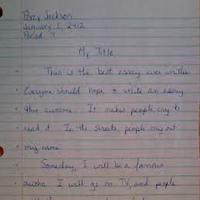 Percy Jackson
January 1, 2012
Period 7
My Title
This is the best essay ever written
Everyone should hope to write an essay
this awesome. It makes people cry to
read it. In the streets, people cry out
my name.
Someday, I will be a famous
author. I will go on TV, and people